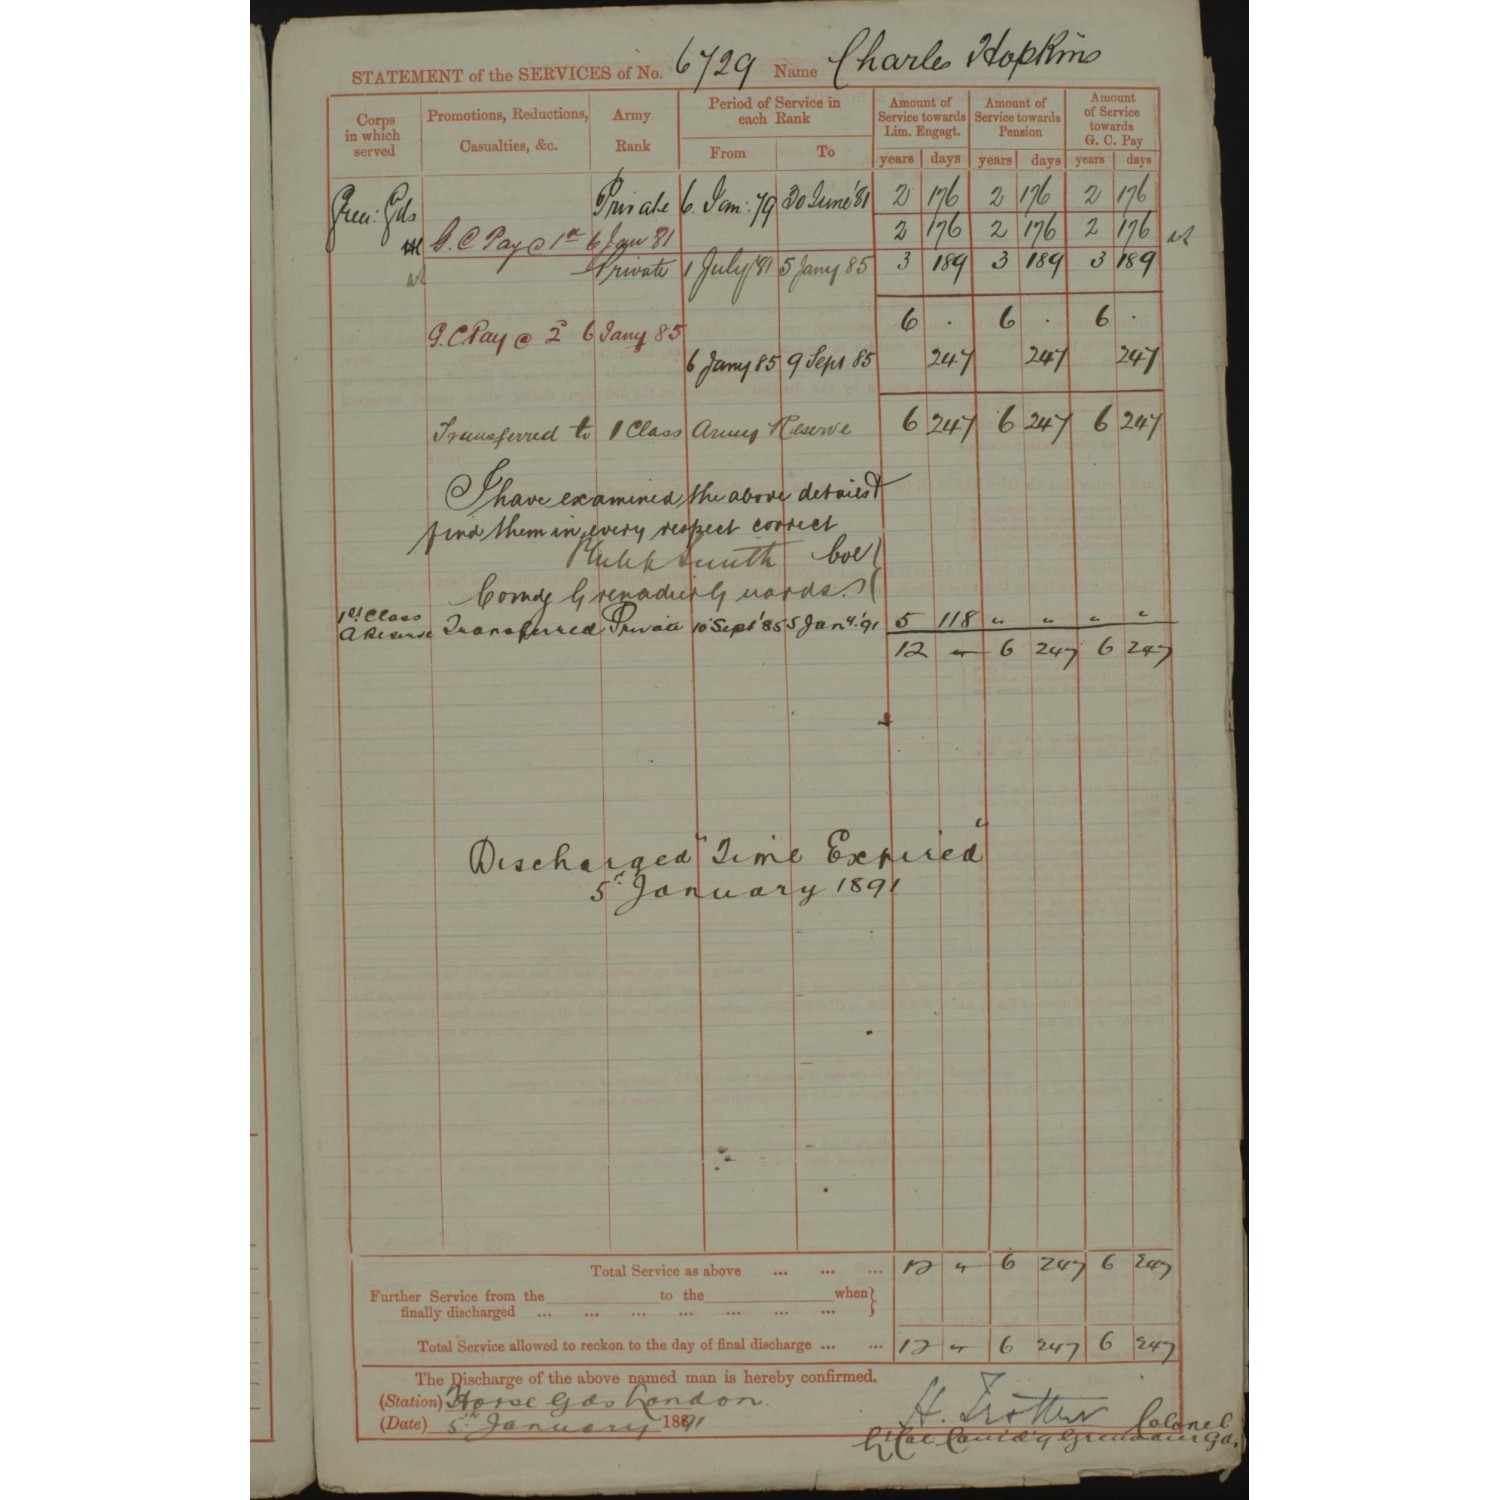 STATEMENT of the SERVICES of No. 6729 Name Charles Hopkins
Corps in which served
Promotions, Reductions, Casualties, &c.
Army Rank
Period of Service in each Rank
From To
Amount of Service towards Lim. Engagt.
Amount of Service towards Pension
Amount of Service towards G. C. Pay
years days years days years days
Gren: Gds Private 6. Jan: 79 30 June '81 2 176 2 176 2 176
2 176 2 176 2 176
G. C Pay @ 1d 6 Jan 81
Private 1 July '81 5 Jany 85 3 189 3 189 3 189
6 . 6 . 6 .
G. C. Pay @ 2d 6 Jany 85
6 Jany 85 9 Sept 85 247 247 247
Transferred to 1 Class Army Reserve 6 247 6 247 6 247
I have examined the above details &
find them in every respect correct
Smith Col
Comdg Grenadier Guards.
1st Class
A Reserve Transferred Private 10 Sept '85 5 Jany. '91 5 118 " " " "
12 " 6 247 6 247
Discharged "Time Expired"
5th January 1891
Total Service as above ... ... ... 12 " 6 247 6 247
Further Service from the to the when
finally discharged ... ... ... ... ... ... ...
Total Service allowed to reckon to the day of final discharge ... ... 12 " 6 247 6 247
The Discharge of the above named man is hereby confirmed.
(Station) Horse Gds London.
(Date) 5th January 1891
H. Trotter Colonel
Lt Col Comdg Grenadier Gds.